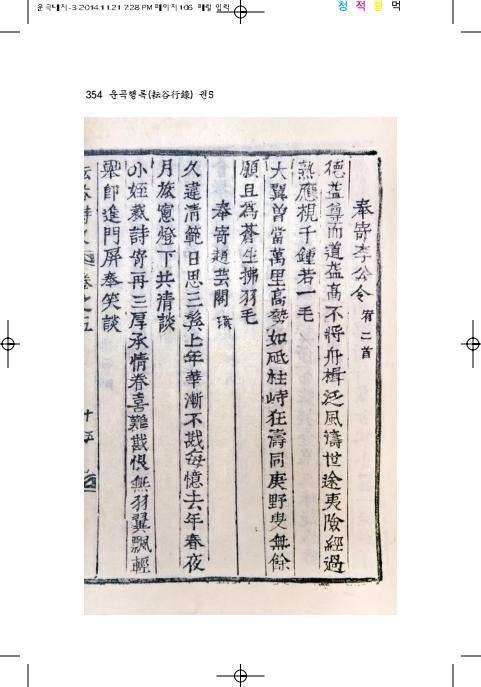 운곡대치-3 2014.11.21 7:28 PM 페이지106
청 적 황 먹
354 운곡행록(耘谷行錄) 권5
奉寄李公令 有二首
德益尊而道益高不將舟楫泛風濤世途夷險經過
熟應視千鍾若一毛
大翼曽當萬里高勢如砥柱峙狂濤同庚野叟無餘
願且爲蒼生拂羽毛
奉寄趙芸閣 璞
久違清範日思三鬂上年華漸不戡每憶去年春夜
月旅窓燈下共清談
小姪裁詩寄再三厚承情眷喜難戡恨無羽翼飄輕
擧即進門屏奉笑談
卷之五
十五